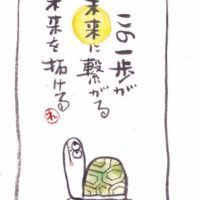 この一歩が
未来に繋がる
未来を拓ける